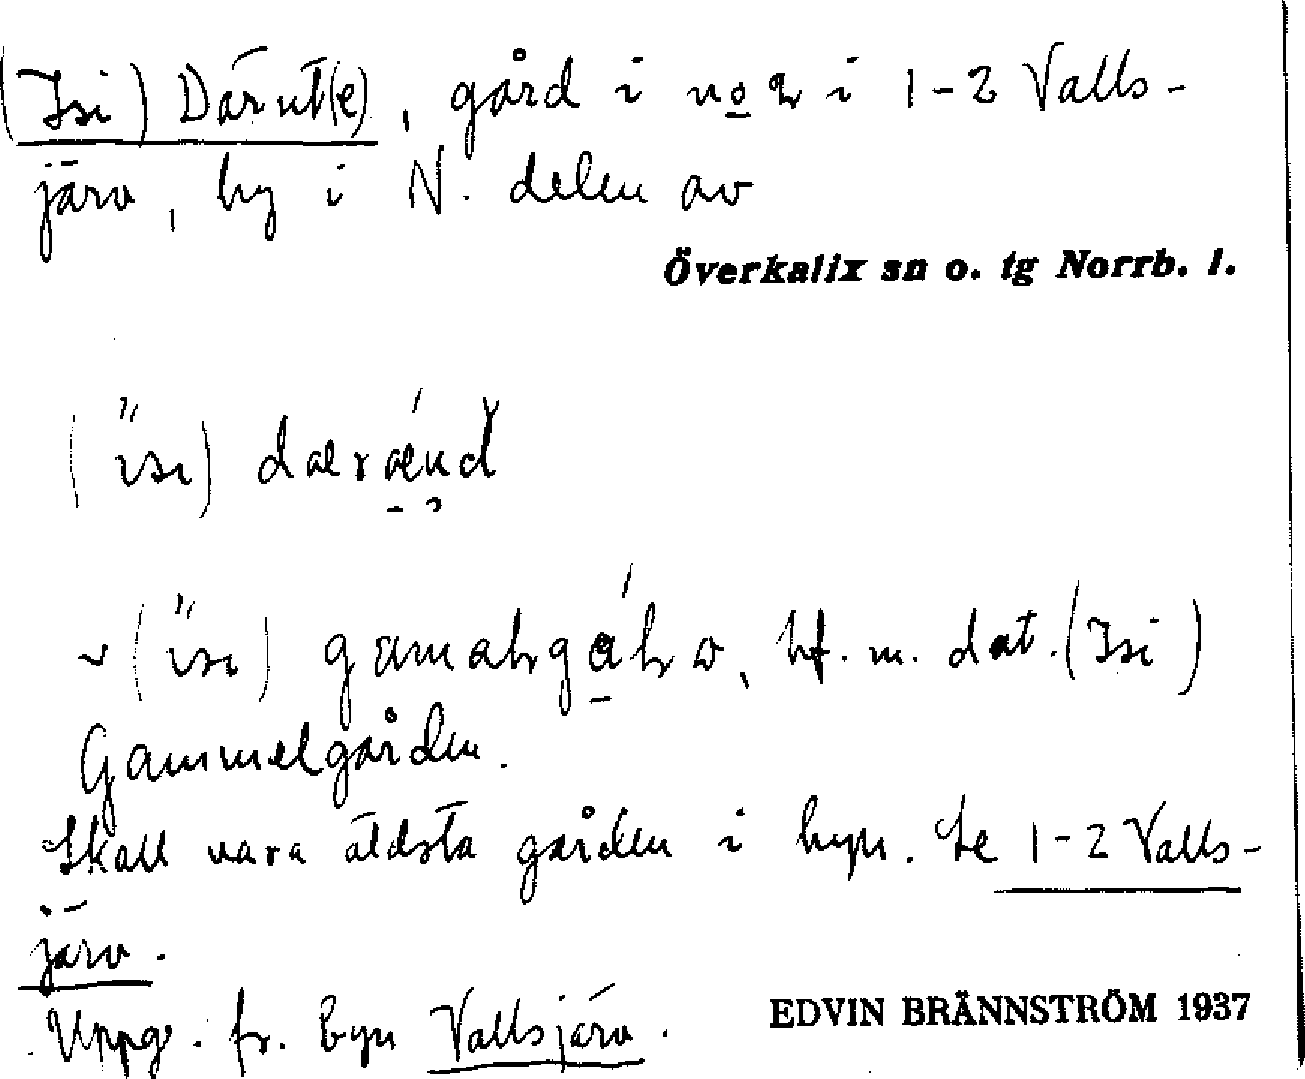 (Isi) Därut(e), gård i no 2 i 1-2 Valls-
järv, by i N. delen av
Överkalix sn o. tg Norrb. l.
(isi) dærænd
~ (isi) gamalgålv, bf. m. dat. (Isi)
Gammelgården.
Skall vara äldsta gården i byn. Se 1-2 Valls-
järv.
Uppg. fr. byn Vallsjärv.
EDVIN BRÄNNSTRÖM 1937